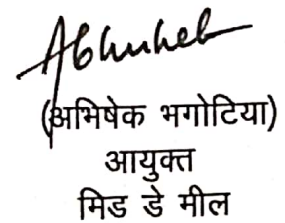 Abhishek
(अभिषेक भगोटिया)
आयुक्त
मिड डे मील